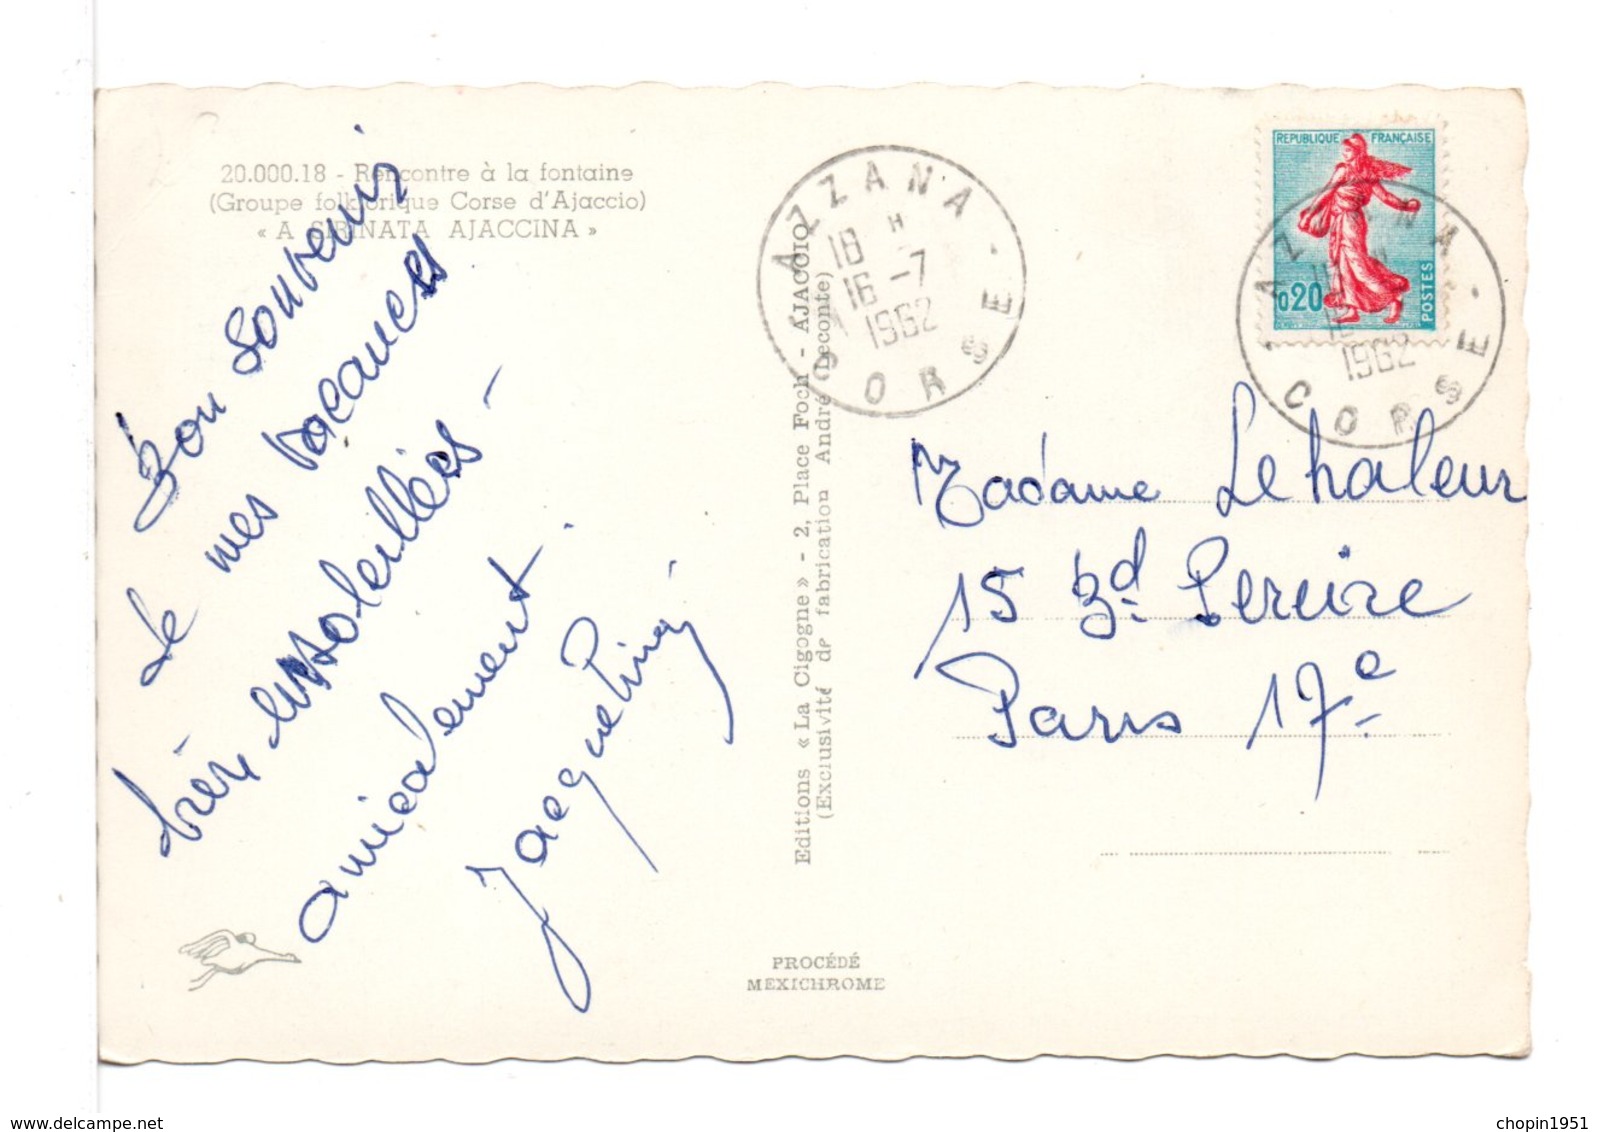 20.000.18 - Rencontre à la fontaine
(Groupe folklorique Corse d'Ajaccio)
« A SIRINATA AJACCINA »
Bon souvenir
de mes vacances
bien ensoleillées -
amicalement.
Jacqueline
Editions « La Cigogne » - 2, Place Foch - AJACCIO
(Exclusivité de fabrication André Leconte)
PROCÉDÉ
MEXICHROME
AZZANA
18 H
16 - 7
1962
CORSE
REPUBLIQUE FRANÇAISE
0,20
POSTES
AZZANA
1962
CORSE
Madame Lehaleur
15 Bd. Pereire
Paris 17e
chopin1951